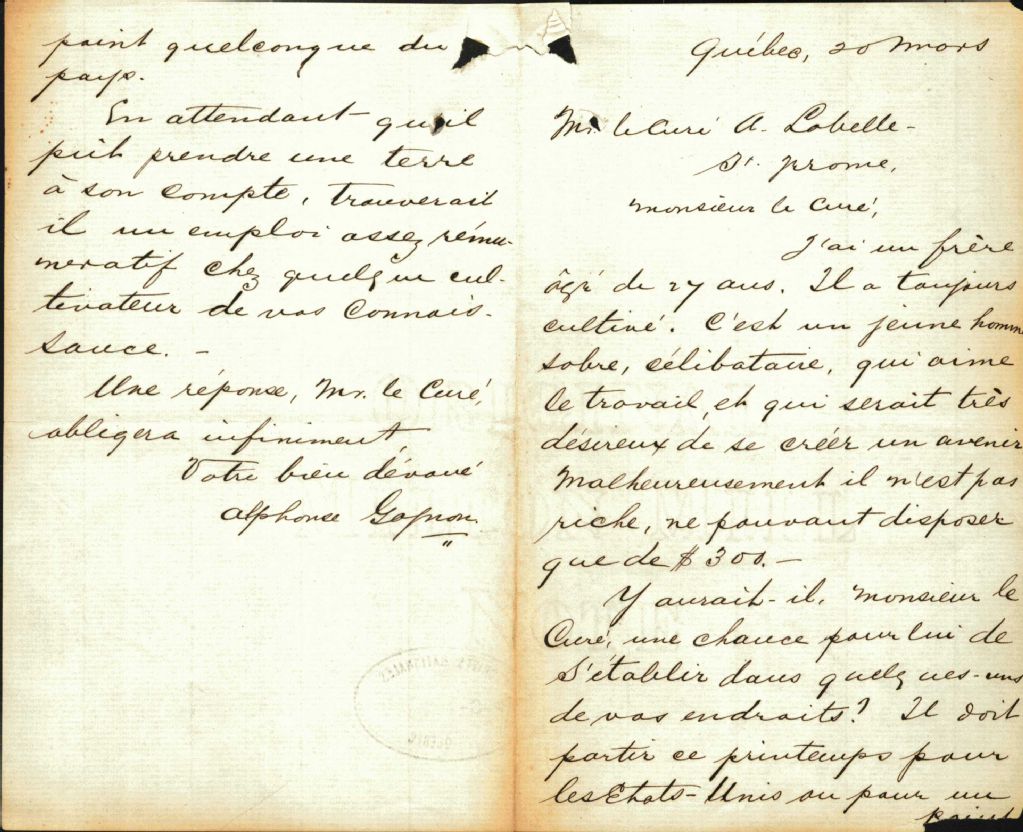 Québec, 20 Mars
Mr. le Curé A. Labelle -
St. Jrome,
Monsieur le Curé,
J'ai un frère
âgé de 27 ans. Il a toujours
cultivé. C'est un jeune homm
sobre, célibataire, qui aime
le travail, et qui serait très
désireux de se créer un avenir
Malheureusement il n'est pas
riche, ne pouvant disposer
que de $300. -
Y aurait-il, Monsieur le
Curé, une chance pour lui de
s'établir dans quelques-uns
de vos endroits? Il doit
partir ce printemps pour
les Etats-Unis ou pour un
point
point quelconque du
pays.
En attendant qu'il
pût prendre une terre
à son compte, trouverait
il un emploi assez rému-
nératif chez quelque cul-
tivateur de vos connais-
sance. -
Une réponse, Mr. le Curé,
obligera infiniment
Votre bien dévoué
Alphonse Gagnon